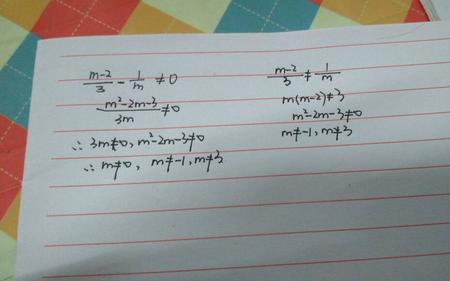 (m-2)/3 - 1/m ≠0
(m²-2m-3)/3m ≠0
∴ 3m≠0, m²-2m-3≠0
∴ m≠0, m≠-1, m≠3
(m-2)/3 ≠ 1/m
m(m-2)≠3
m²-2m-3≠0
m≠-1, m≠3